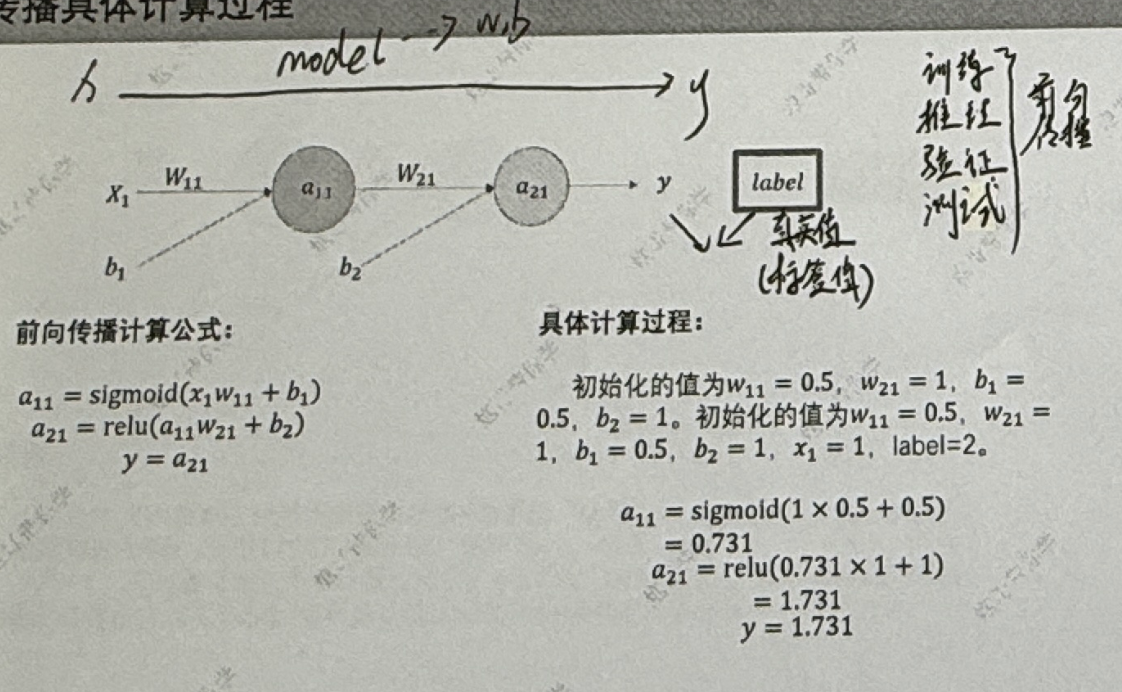 传播具体计算过程
model → w,b
y
训练
推理
验证
测试
前向
传播
X₁ W₁₁ a₁₁ W₂₁ a₂₁ y label
b₁ b₂
真实值
(标签值)
前向传播计算公式：
a₁₁ = sigmoid(x₁w₁₁ + b₁)
a₂₁ = relu(a₁₁w₂₁ + b₂)
y = a₂₁
具体计算过程：
初始化的值为w₁₁ = 0.5，w₂₁ = 1，b₁ =
0.5，b₂ = 1。初始化的值为w₁₁ = 0.5，w₂₁ =
1，b₁ = 0.5，b₂ = 1，x₁ = 1，label=2。
a₁₁ = sigmoid(1 × 0.5 + 0.5)
= 0.731
a₂₁ = relu(0.731 × 1 + 1)
= 1.731
y = 1.731